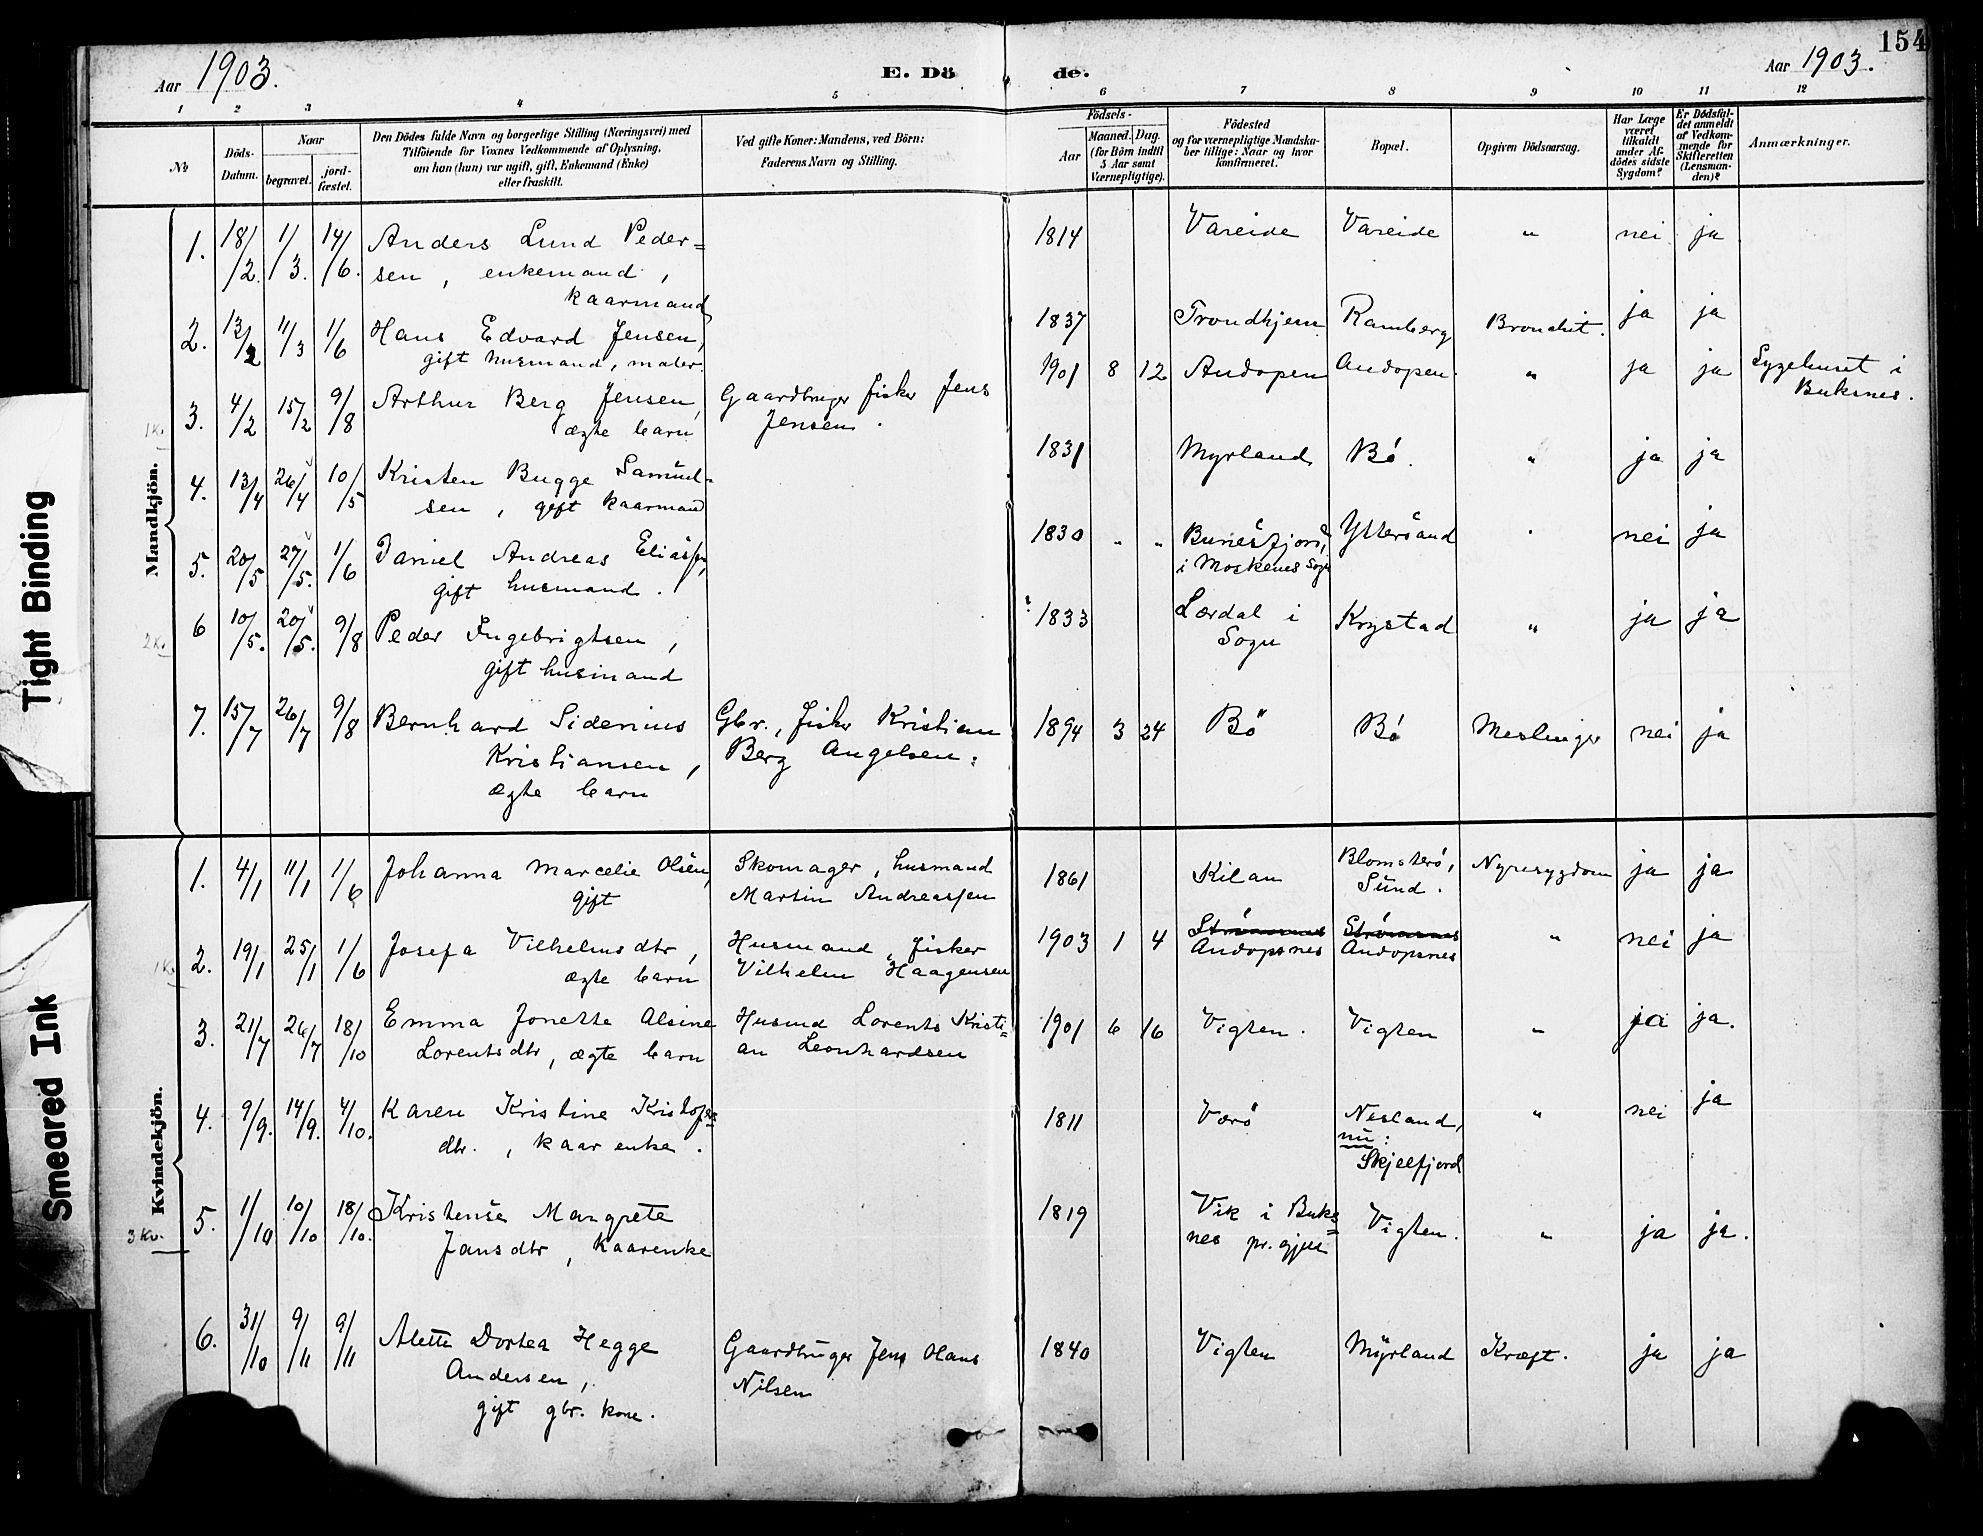 154
Aar 1903.
E. Döde.
Aar 1903.
1 2 3 4 5 6 7 8 9 10 11 12
No
Döds-
Datum.
Naar
begravet.
jord-
fæstet.
Den Dödes fulde Navn og borgerlige Stilling (Næringsvei) med
Tilföiende for Voxnes Vedkommende af Oplysning,
om han (hun) var ugift, gift, Enkemand (Enke)
eller fraskilt.
Ved gifte Koner: Mandens, ved Börn:
Faderens Navn og Stilling.
Födsels-
Aar
Maaned. Dag.
(for Börn indtil
5 Aar samt
Værnepligtige).
Födested
og for værnepligtige Mandska-
ber tillige: Naar og hvor
konfirmeret.
Bopæl.
Opgiven Dödsaarsag.
Har Læge
været
tilkaldt
under Af-
dödes sidste
Sygdom?
Er Dödsfal-
det anmeldt
af Vedkom-
mende for
Skifteretten
(Lensman-
den)?
Anmærkninger.
Mandkjön.
1. 18/2. 1/3. 14/6. Anders Lund Peder=
sen, enkemand,
kaarmand
1814 Vareide Vareide " nei ja
2. 13/2 11/3 1/6 Hans Edvard Jensen,
gift husmand, maler.
1837 Trondhjem Ramberg Bronchit. ja ja
1 Kv.
3. 4/2 15/2 9/8 Arthur Berg Jensen,
ægte barn
Gaardbruger fisker Jens
Jensen.
1901 8 12 Andopen Andopen. " ja ja Sygehuset i
Buksnes.
4. 13/4 26/4 10/5 Kristen Bugge Samuel-
sen, gift kaarmand
1831 Myrland Bö. " ja ja
5. 20/5 27/5. 1/6 Daniel Andreas Eliassen,
gift husmand.
1830 " " Bunesfjord,
i Moskenes Sogn
Yttersand " nei ja
2 Kv.
6 10/5. 20/5. 9/8 Peder Ingebrigtsen,
gift husmand
? 1833 Lærdal i
Sogn
Krystad " ja ja
7. 15/7 26/7 9/8 Bernhard Siderius
Kristiansen,
ægte barn
Gbr., fisker Kristian
Berg Angelsen.
1894 3 24 Bö Bö Meslinger nei ja
Kvindekjön.
1. 4/1 11/1 1/6 Johanna Marcelie Olsen,
gift
Skomager, husmand
Martin Andreassen
1861 Kilan Blomsterö,
Sund.
Nyresygdom ja ja
1 Kv.
2. 19/1 25/1 1/6 Josefa Vilhelmsdtr,
ægte barn
Husmand, fisker
Vilhelm Haagensen
1903 1 4 Strömsnes Strömsnes
Andopsnes Andopsnes
" nei ja
3. 21/7 26/7 18/10 Emma Jonette Alsine
Lorentsdtr, ægte barn
Husmd Lorents Kristi=
an Leonhardsen
1901 6 16 Vigten. Vigten " ja ja.
4. 9/9. 14/9. 4/10. Karen Kristine Kristofers=
dtr., kaarenke.
1811 Værö Nesland,
nu:
Skjelfjord
" nei ja
3 Kv.
5. 1/10 10/10 18/10. Kristense Margrete
Jansdtr, Kaarenke
1819 Vik i Buks=
nes pr.gjeld
Vigten. " ja ja.
6. 31/10 9/11 9/11 Alette Dortea Hegge
Andersen,
gift gbr. kone.
Gaardbruger Jens Hans
Nilsen
1840 Vigten Myrland Kræft. ja ja
Tight Binding
Smeared Ink